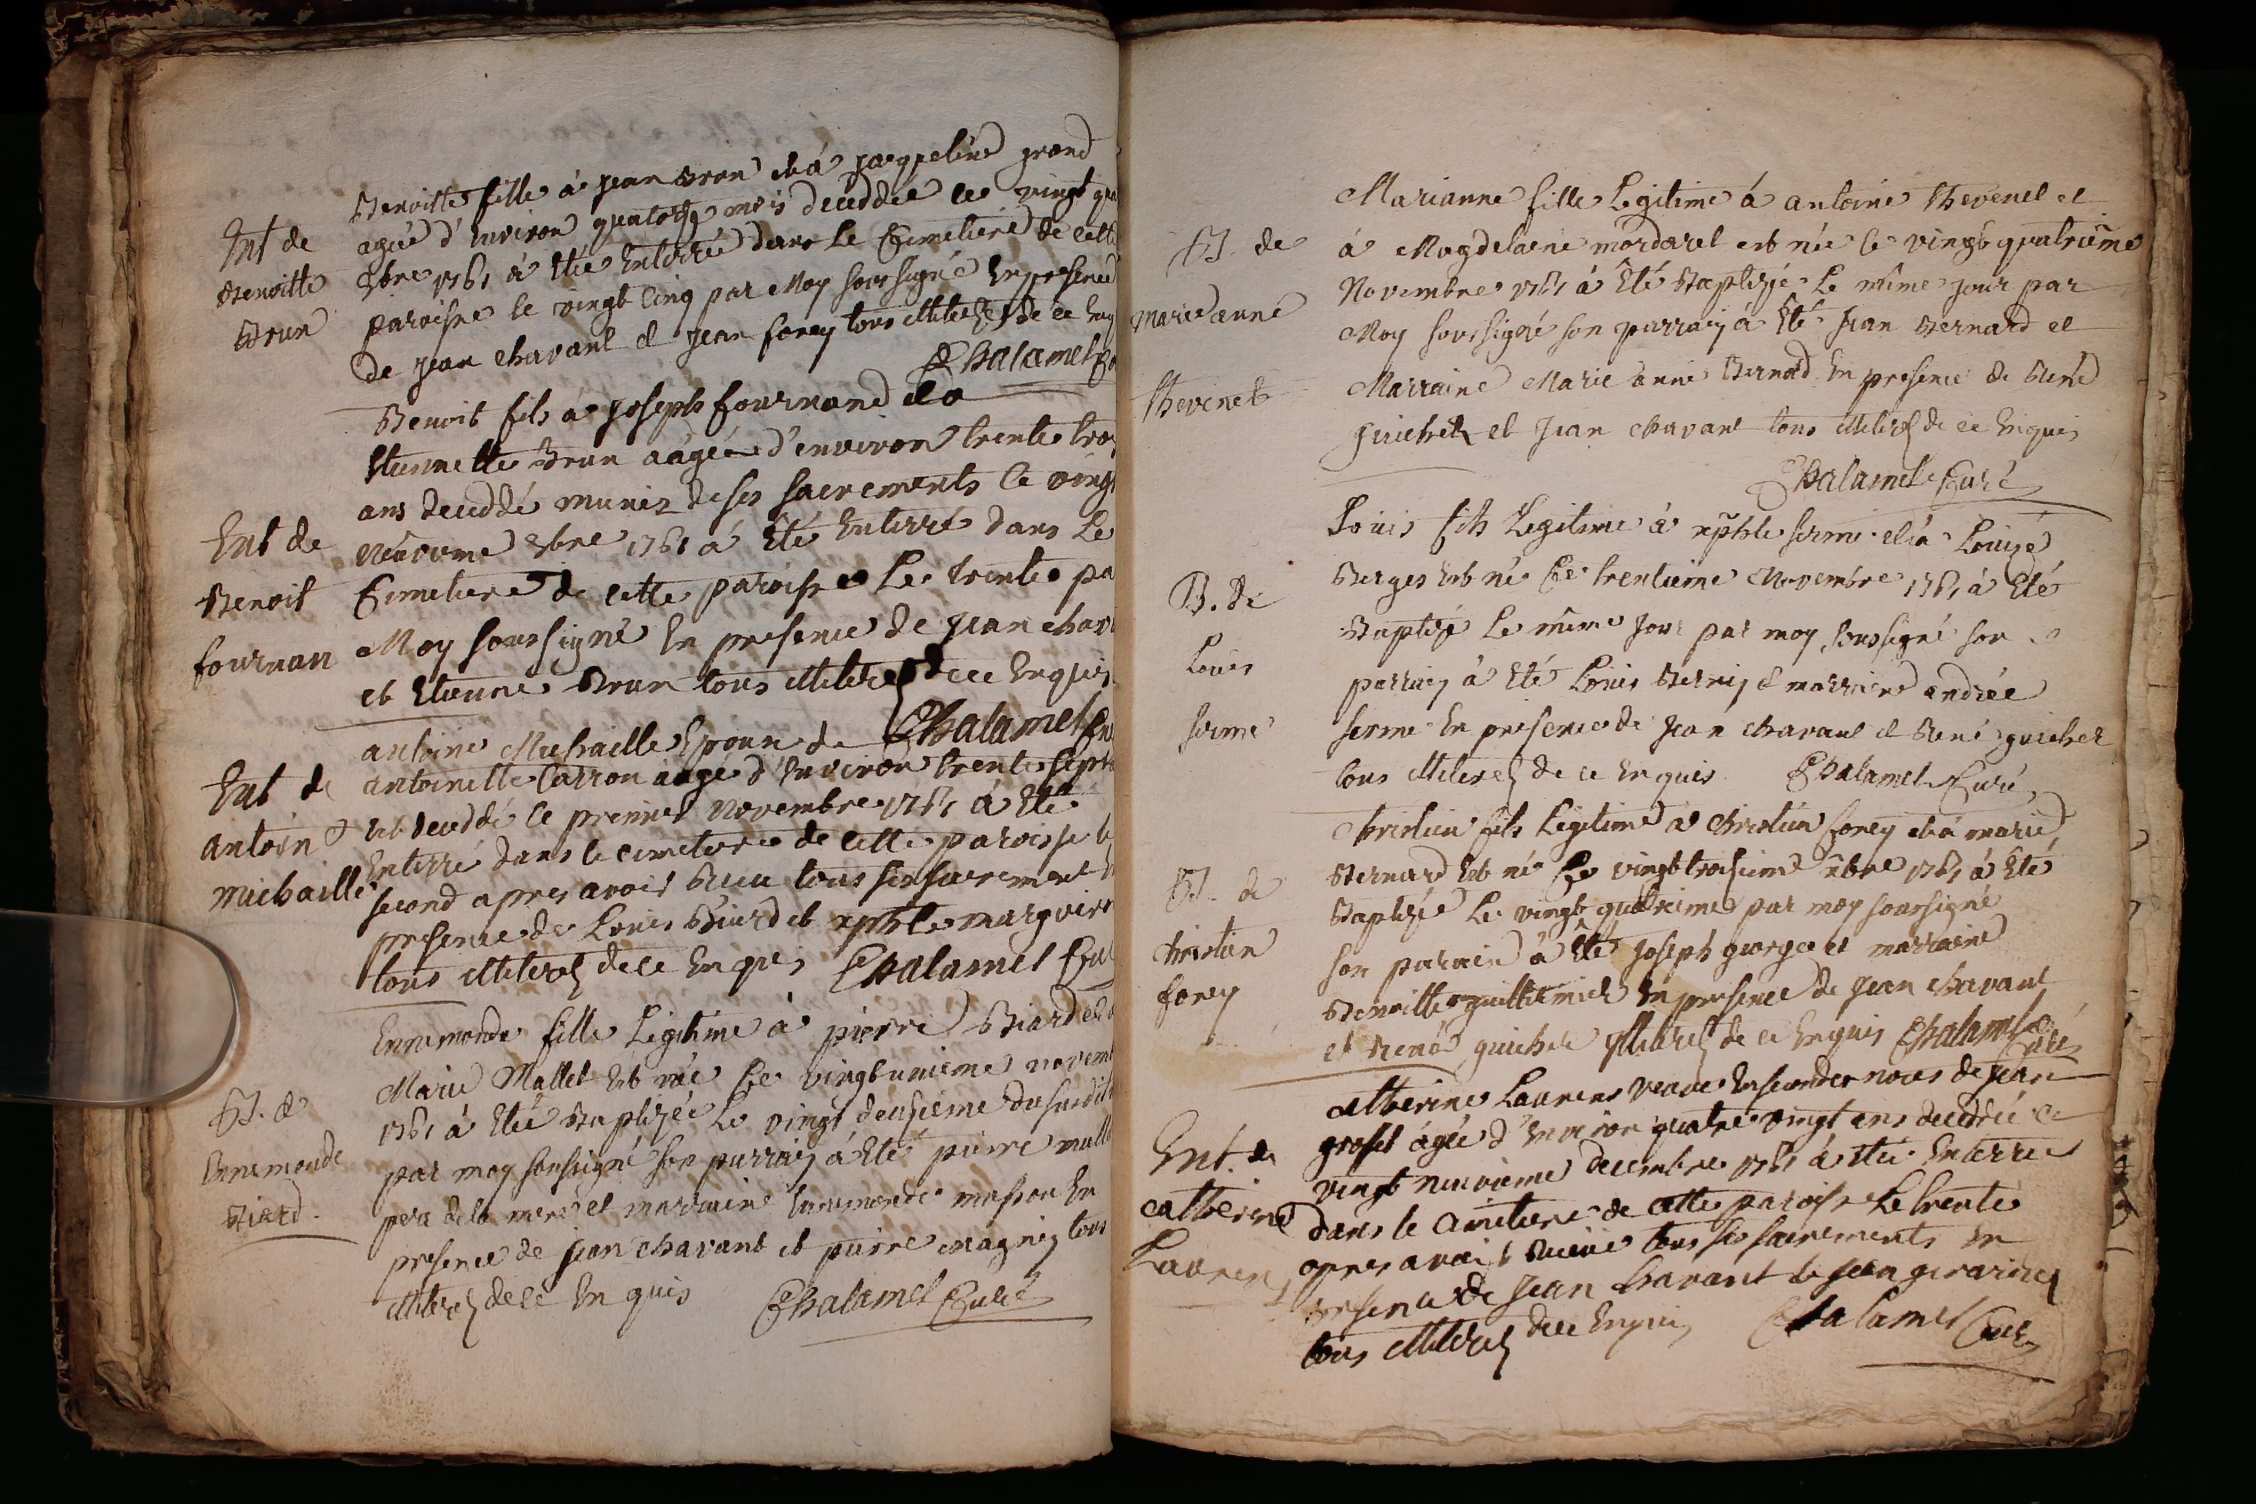 Ent de
Benoitte
Brun
Benoitte fille à jean Brun et à jacqueline grand
agée d'environ quatorze mois deceddée le vingt qua
8bre 1761 à Etée Enterrée dans Le Cimetiere de cette
paroisse le vingt cinq par Moy soussigné En presence
de jean chavant et jean forey tous illiterés de ce Enq
Chalamel Cu
Ent de
Benoit
fournan
Benoit fils à joseph fournand et a
Etiennette Brun aâgée d'environ trente troi
ans deceddé munis de ses sacrements le vingt
neuvieme 8bre 1761 à Eté Enterré dans Le
Cimetiere de cette paroisse Le trente pa
Moy soussigné En presence de jean chava
et Etienne Brun tous illiterés de ce Enquis
Chalamel Cu
Ent de
antoine
michaille
antoine Michaille Epoux de
antoinette Carron aagé d'Environ trente sept
Est deceddé le premier Novembre 1761 à Eté
Enterré dans le cimetiere de cette paroisse le
second apres avoir Receu tous ses sacrements En
presence de Louis Biard et xptsle marguire
tous illiterés de ce Enquis Chalamel Cu
B. de
Ennemonde
Biard.
Ennemonde fille Legitime à pierre Biard et à
Marie Mallet Est née Le vingtunieme novem
1761 à Etée Baptizée Le vingt deuxieme du susdit
par moy soussigné son parrain à Eté pierre mall
pere de la mere et marraine Ennemonde masson En
presence de jean chavant et pierre magnin tous
illiterés de ce Enquis Chalamel Curé
B. de
marie anne
Thevenet
Marianne fille Legitime à antoine Thevenet et
à Magdelaine mordarel est née le vingt quatrieme
Novembre 1761 à Eté Baptizée Le même jour par
Moy soussigné son parrain à Eté jean Bernard et
Marraine Marie anne Bernard En presence de René
guichet et jean chavant tous illiterés de ce Enquis
Chalamel Curé
B. de
Louis
ferme
Louis fils Legitime à xptsle ferme et à Louise
Berges Est né Le trentieme Novembre 1761 à Eté
Baptizé Le même jour par moy soussigné son
parrain à Eté Louis Bernin & marraine andrée
ferme En presence de jean chavant et René guichet
tous illiterés de ce Enquis Chalamel Curé
B. de
christin
forey
christin fils Legitime à christin forey et à marie
Bernard Est né Le vingt troisieme 9bre 1761 à Eté
Baptizée Le vingt quatrieme par moy soussigné
son parrain à Eté joseph george et marraine
Benoitte guillermier En presence de jean chavant
et René guichet illiterés de ce Enquis Chalamel
Curé
Ent. de
catherine
Laurens
Catherine Laurens veuve En secondes noces de jean
grosset agée d'Environ quatre vingt ans deceddée le
vingt neuvieme decembre 1761 à Etée Enterrée
dans le cimetiere de cette paroisse Le trente
apres avoir Receue tous ses sacrements En
presence de jean chavant et jean girardet
tous illiterés de ce Enquis Chalamel Curé